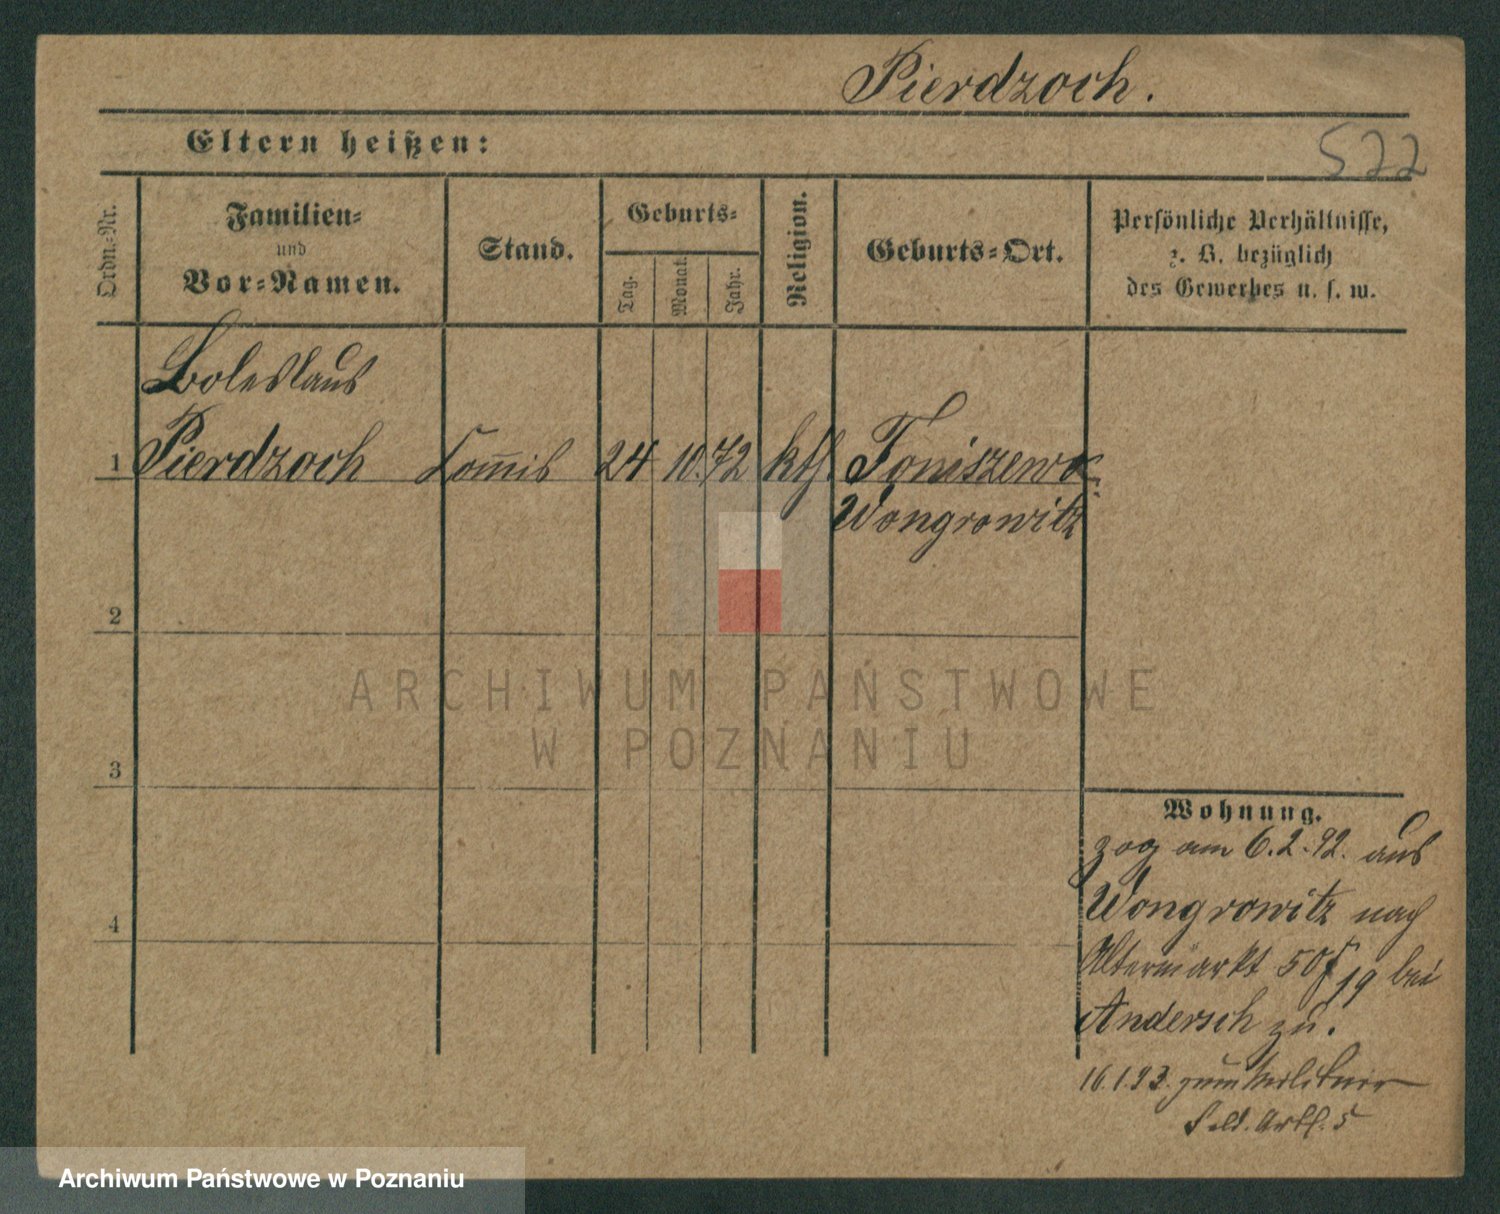 Pierdzoch.
Eltern heißen:
522
Ordn.-Nr.
Familien-
und
Vor-Namen.
Stand.
Geburts-
Tag.
Monat.
Jahr.
Religion.
Geburts-Ort.
Persönliche Verhältnisse,
z. B. bezüglich
des Gewerbes u. s. w.
Boleslaus
1 Pierdzoch Commis 24 10. 72 kth. Toniszewo
Wongrowitz
2
3
4
Wohnung.
zog am 6.2.92. aus
Wongrowitz nach
Altermarkt 50 19 bei
Andersch zu.
16.1.93. zum Militair
Feld. Artl. 5
ARCHIWUM PAŃSTWOWE
W POZNANIU
Archiwum Państwowe w Poznaniu